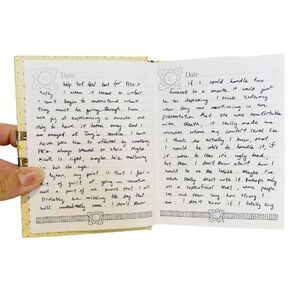 Date
help but feel bad for Reed +
Kathy. I mean it seems so unfair.
I can't begin to understand what
they must be going through. From
such joy at experiencing a miracle and
elation to have it taken away. God I
am enraged at Tony in London. I have
never seen him so affected by working
life. Always placed no stake. Maybe
built it right, maybe he's mellowing
in his life right.
Anyway, my point is that I feel a
bit of guilt of going on vacation
on a point of in flowers that I will
probably be missing the day that
will undoubtedly come. I don't know
Date
if I could handle two
funerals in a month. It would just
be too depressing I think. Yesterday
when they was mentioning in her
presentation that she was comfortable
with death, it really made me
wonder where my comfort level lies.
I think me actually know what
I would be able to handle it, if
it were to rear its ugly head,
but then I don't know about how I
would be on the inside. Maybe I've
never really dealt with it. Perhaps only
on a superficial level, where people
see me and then say how strong
I am. I don't know if I totally buy